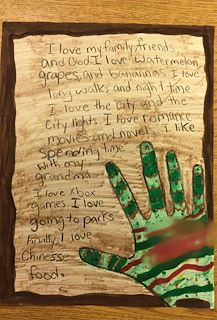 I love my family, friends,
and God. I love watermelon,
grapes, and banannas. I love
long walks, and night time
I love the city and the
city lights I love romance
movies and novels. I like
spending time
with my
grandma
I love Xbox
games. I love
going to parks
Finally, I love
Chinesse
food.